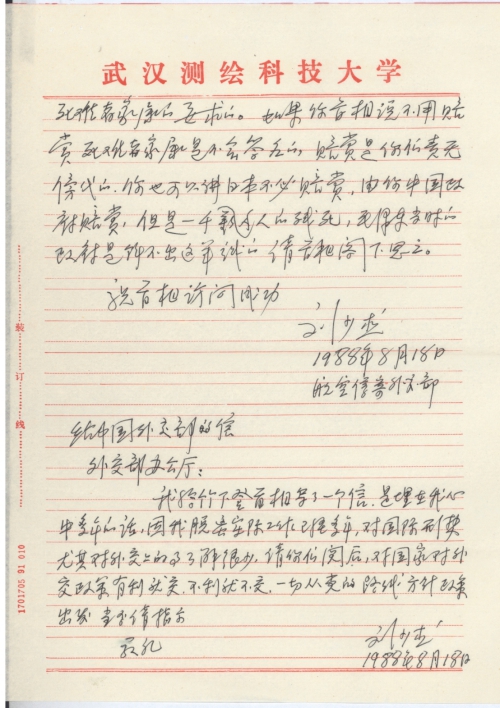 武汉测绘科技大学
死难者家属的要求的。如果你首相说不用赔
赏死难者家属是不会答应的,赔赏是你们责无
傍代的,你也可以讲日本不必赔赏,由你中国政
府赔赏,但是一千多人的残死,
政府是 不出这 的 请首相阁下思之。
祝首相访问成功
刘少杰
1988年8月18日
航空信寄外交部
给中国外交部的信
外交部办公厅:
我给竹下登首相写了一个信,是埋在我心
中多年的话,因我脱离实际工作已经多年,对国际形势
尤其对外交上的了解很少,请你们阅后,对国家对外
交政策有利就交,不利就不交,一切从党的路线方针政策
出发 请指示
敬礼
刘少杰
1988年8月18日
装订线
1701705 91 010